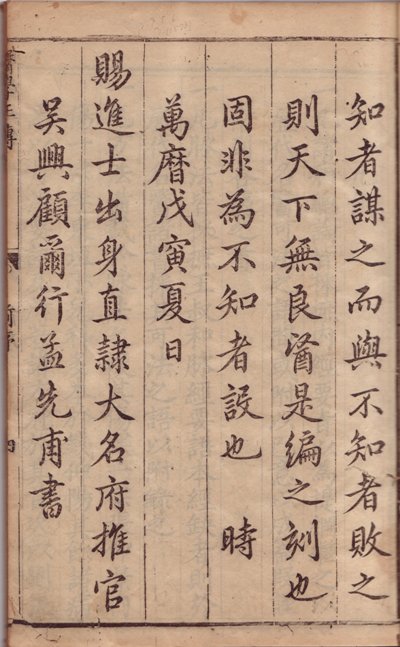 知者謀之而與不知者敗之
則天下無良醫是編之刻也
固非為不知者設也　時
萬曆戊寅夏日
賜進士出身直隸大名府推官
吳興顧爾行孟先甫書
醫學正傳
前序
四